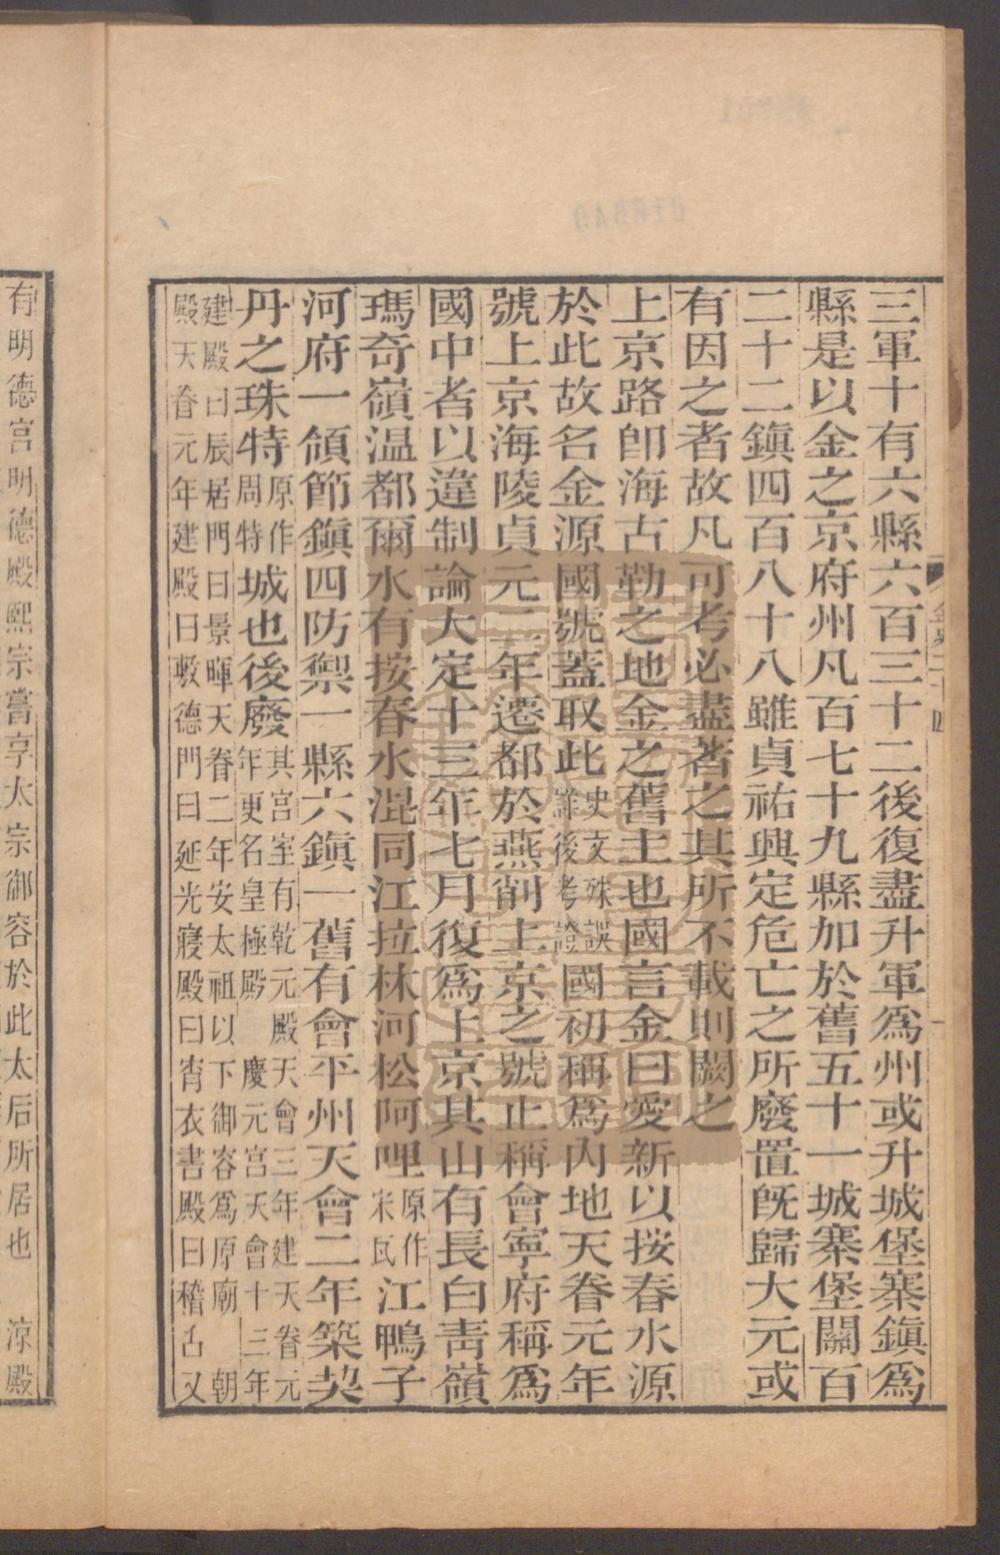 三軍十有六縣六百三十二後復盡升軍爲州或升城堡寨鎭爲
縣是以金之京府州凡百七十九縣加於舊五十一城寨堡關百
二十二鎭四百八十八雖貞祐興定危亡之所廢置旣歸大元或
有因之者故凡可考必盡著之其所不載則闕之
上京路卽海古勒之地金之舊土也國言金曰愛新以按春水源
於此故名金源國號蓋取此史文殊誤詳後考證國初稱爲內地天眷元年
號上京海陵貞元二年遷都於燕削上京之號止稱會寧府稱爲
國中者以違制論大定十三年七月復爲上京其山有長白靑嶺
瑪奇嶺溫都爾水有按春水混同江拉林河松阿哩原作宋瓦江鴨子
河府一領節鎭四防禦一縣六鎭一舊有會平州天會二年築契
丹之珠特原作周特城也後廢其宮室有乾元殿天會三年建天眷元年更名皇極殿慶元宮天會十三年
建殿曰辰居門曰景暉天眷二年安太祖以下御容爲原廟朝
殿天眷元年建殿曰敷德門曰延光寢殿曰宵衣書殿曰稽古又
有明德宮明德殿熙宗嘗享太宗御容於此太后所居也涼殿